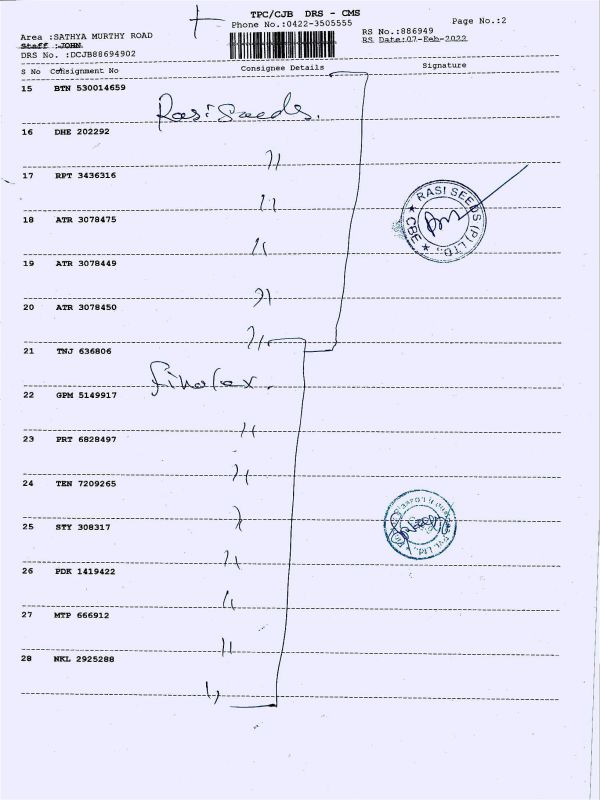 TPC/CJB DRS - CMS
Phone No.:0422-3505555
Page No.:2
Area :SATHYA MURTHY ROAD
RS No.:886949
Staff :JOHN
RS Date:07-Feb-2022
DRS No. :DCJB88694902
S No Consignment No Consignee Details Signature
15 BTN 530014659
Rasi Seeds.
16 DHE 202292
"
17 RPT 3436316
"
18 ATR 3078475
"
19 ATR 3078449
"
20 ATR 3078450
"
21 TNJ 636806
finolex.
22 GPM 5149917
"
23 PRT 6828497
"
24 TEN 7209265
"
25 STY 308317
"
26 PDK 1419422
"
27 MTP 666912
"
28 NKL 2925288
"
RASI SEEDS (P) LTD.,
★ CBE ★